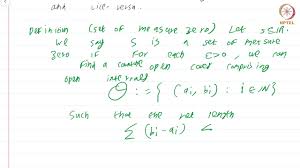 and vice-versa.
NPTEL
Definition (set of measure zero) Let S⊆ℝ.
We say S is a set of measure
zero if for each ε>0, we can
find a countable open cover comprising
open intervals
Θ := { (ai, bi) : i ∈ ℕ }
Such that the net length
∑ (bi - ai) <